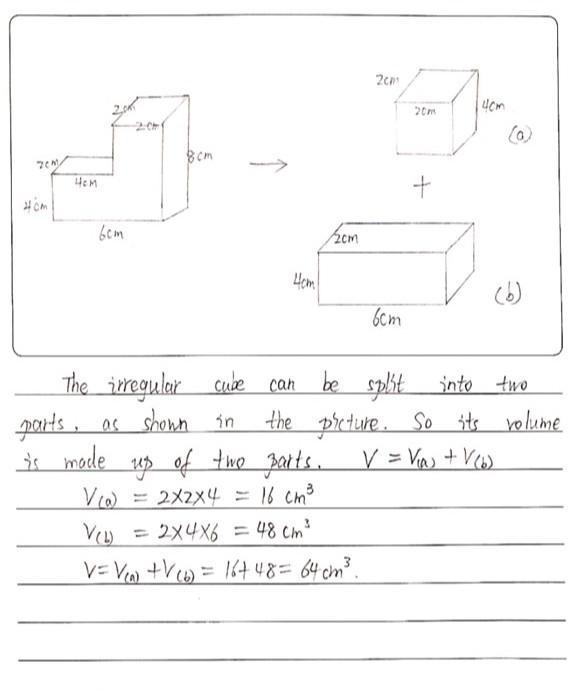 2cm
2cm
2cm
4cm
8cm
4cm
6cm
2cm
2cm
4cm
(a)
+
2cm
4cm
6cm
(b)
The irregular cube can be split into two
parts, as shown in the picture. So its volume
is made up of two parts. V = V(a) + V(b)
V(a) = 2×2×4 = 16 cm³
V(b) = 2×4×6 = 48 cm³
V = V(a) + V(b) = 16+48 = 64 cm³.